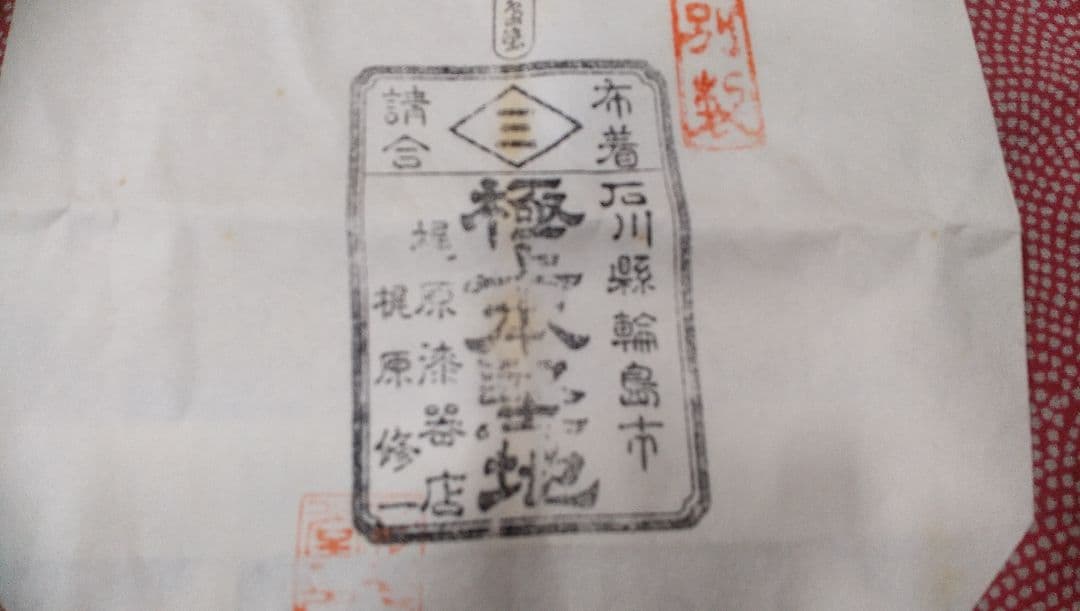 別製
布着
三
請合
石川縣輪島市
極上本堅地
梶原漆器店
梶原修一